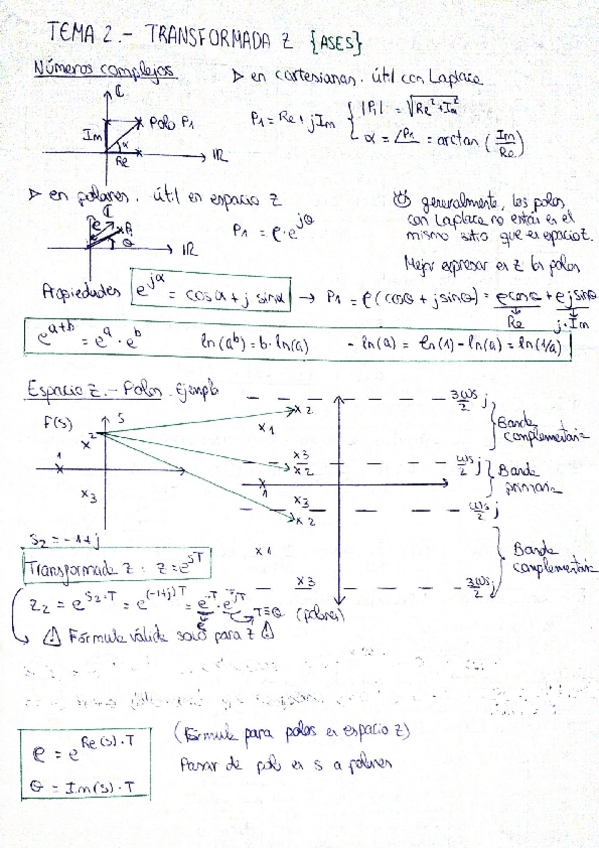 TEMA 2.- TRANSFORMADA Z {ASES}
Números complejos
▷ en cartesianas. útil con Laplace
ℂ
Im
Polo P1
α
Re
IR
P1 = Re + jIm { |P1| = √(Re² + Im²)
α = ∠P1 = arctan (Im/Re)
▷ en polares. útil en espacio Z
ℂ
ρ
P1
θ
IR
P1 = ρ·e^jθ
generalmente, los polos
con Laplace no están en el
mismo sitio que en espacio Z.
Mejor expresar en Z los polos
Propiedades e^jα = cosα + j sinα → P1 = ρ(cosθ + jsinθ) = ρcosθ + ρjsinθ
Re
j·Im
e^(a+b) = e^a · e^b ln(a^b) = b·ln(a) - ln(a) = ln(1) - ln(a) = ln(1/a)
Espacio Z.- Polos. Ejemplo
F(s)
S
x2
x
1
x3
x2
x1
x3
x2
x
1
x3
x2
x1
x3
3ωs/2 j
Banda
complementaria
ωs/2 j
Banda
primaria
ωs/2 j
Banda
complementaria
3ωs/2
S2 = -1+j
Transformada Z: z = e^sT
Z2 = e^(S2·T) = e^((-1+j)T) = e^-T · e^jT
ρ
T≡θ (polares)
⚠ Fórmula válida solo para Z ⚠
ρ = e^(Re(s)·T)
θ = Im(s)·T
(Fórmula para polos en espacio Z)
Pasar de polo en s a polares